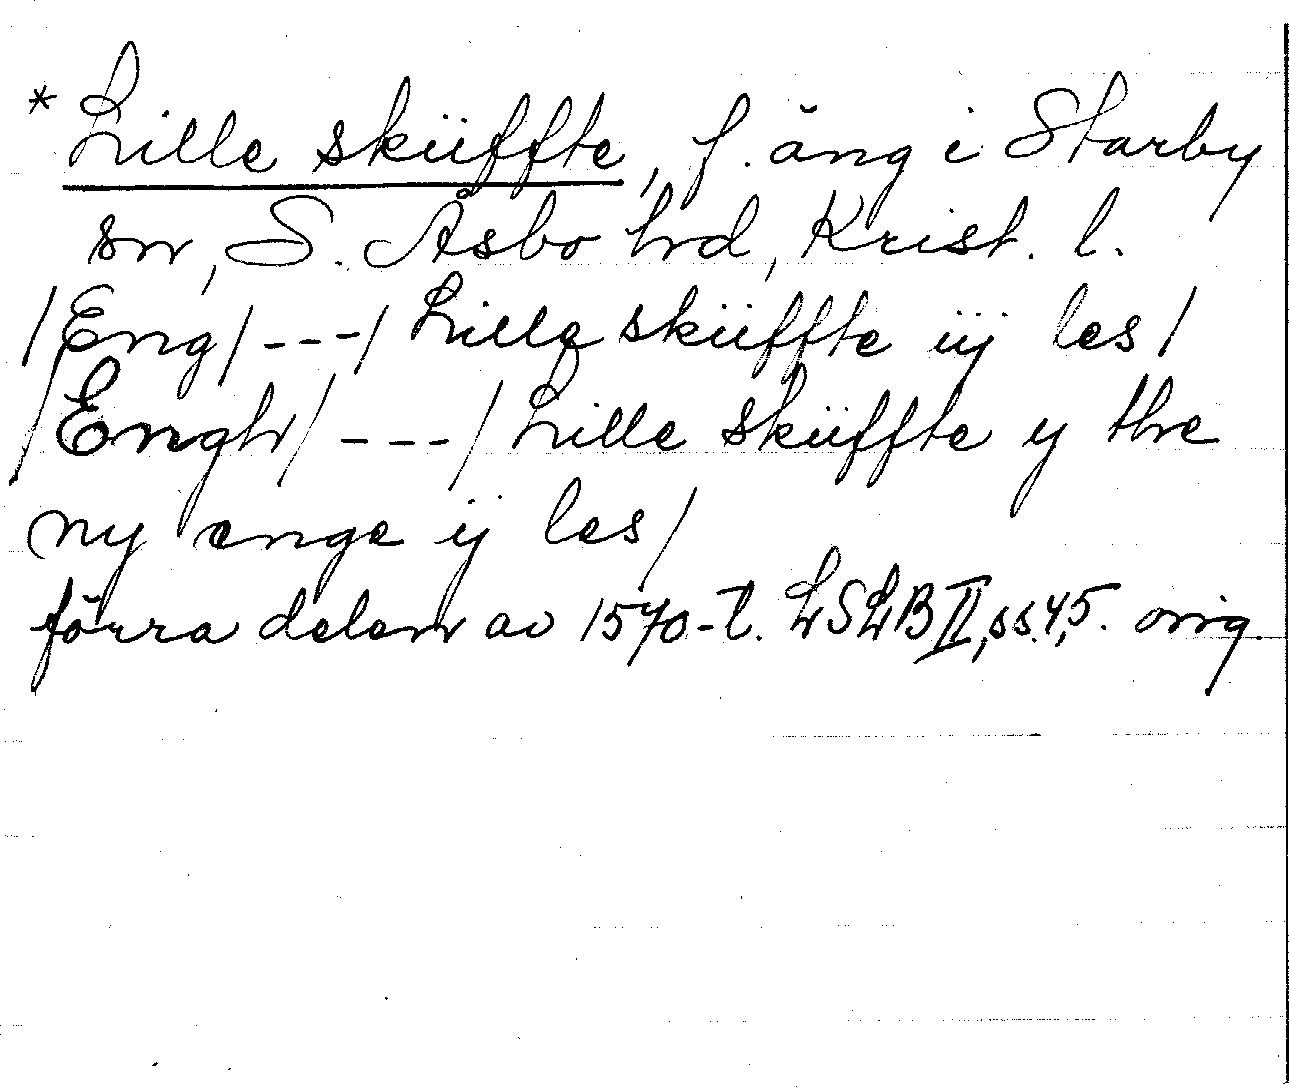 * Lille sküffte, f. äng i Starby
sn, S. Åsbo hd, Krist. l.
/Eng/ --- / Lille sküffte iij les /
/Engh/ --- / Lille sküffte y the
ny enge ij les /
förra delen av 1570-t. LSLB II, ss. 4, 5. orig.